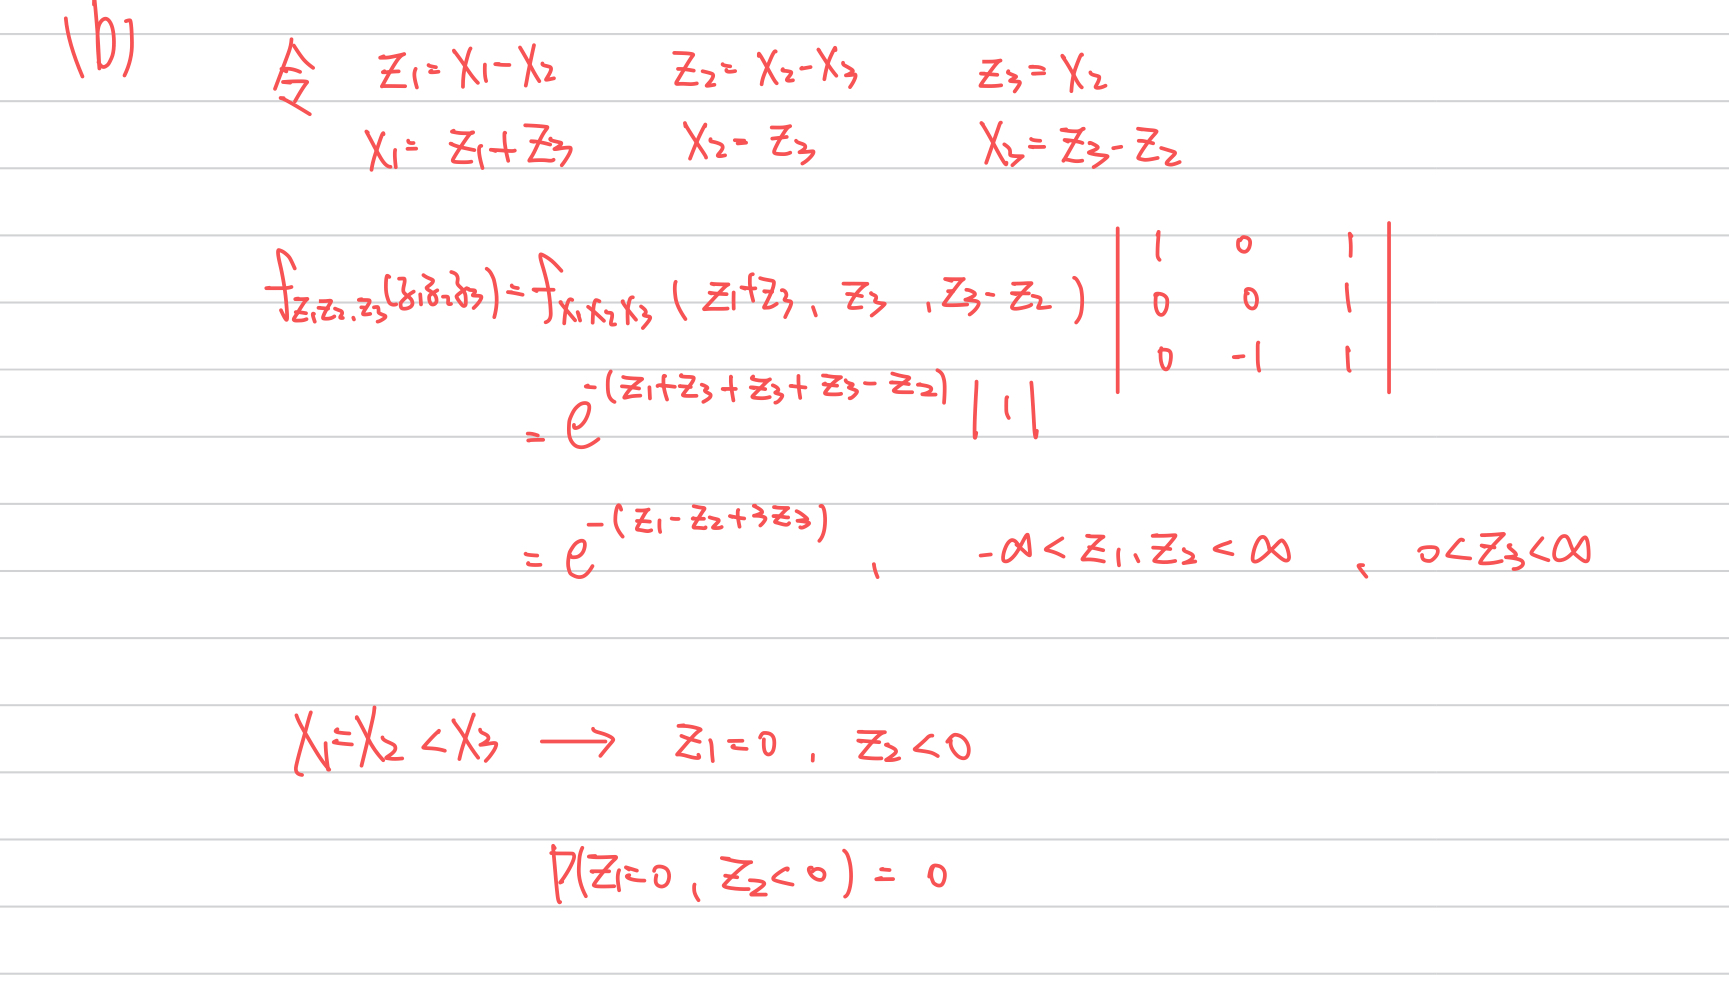 (b)
令 Z₁=X₁-X₂ Z₂=X₂-X₃ Z₃=X₂
X₁=Z₁+Z₃ X₂=Z₃ X₃=Z₃-Z₂
f_{Z₁,Z₂,Z₃}(z₁,z₂,z₃)=f_{X₁X₂X₃}(Z₁+Z₃, Z₃, Z₃-Z₂) | 1 0 1
0 0 1
0 -1 1 |
= e^{-(Z₁+Z₃+Z₃+Z₃-Z₂)} |1|
= e^{-(Z₁-Z₂+3Z₃)}, -∞<Z₁,Z₂<∞, 0<Z₃<∞
X₁=X₂<X₃ → Z₁=0, Z₂<0
P(Z₁=0, Z₂<0)=0